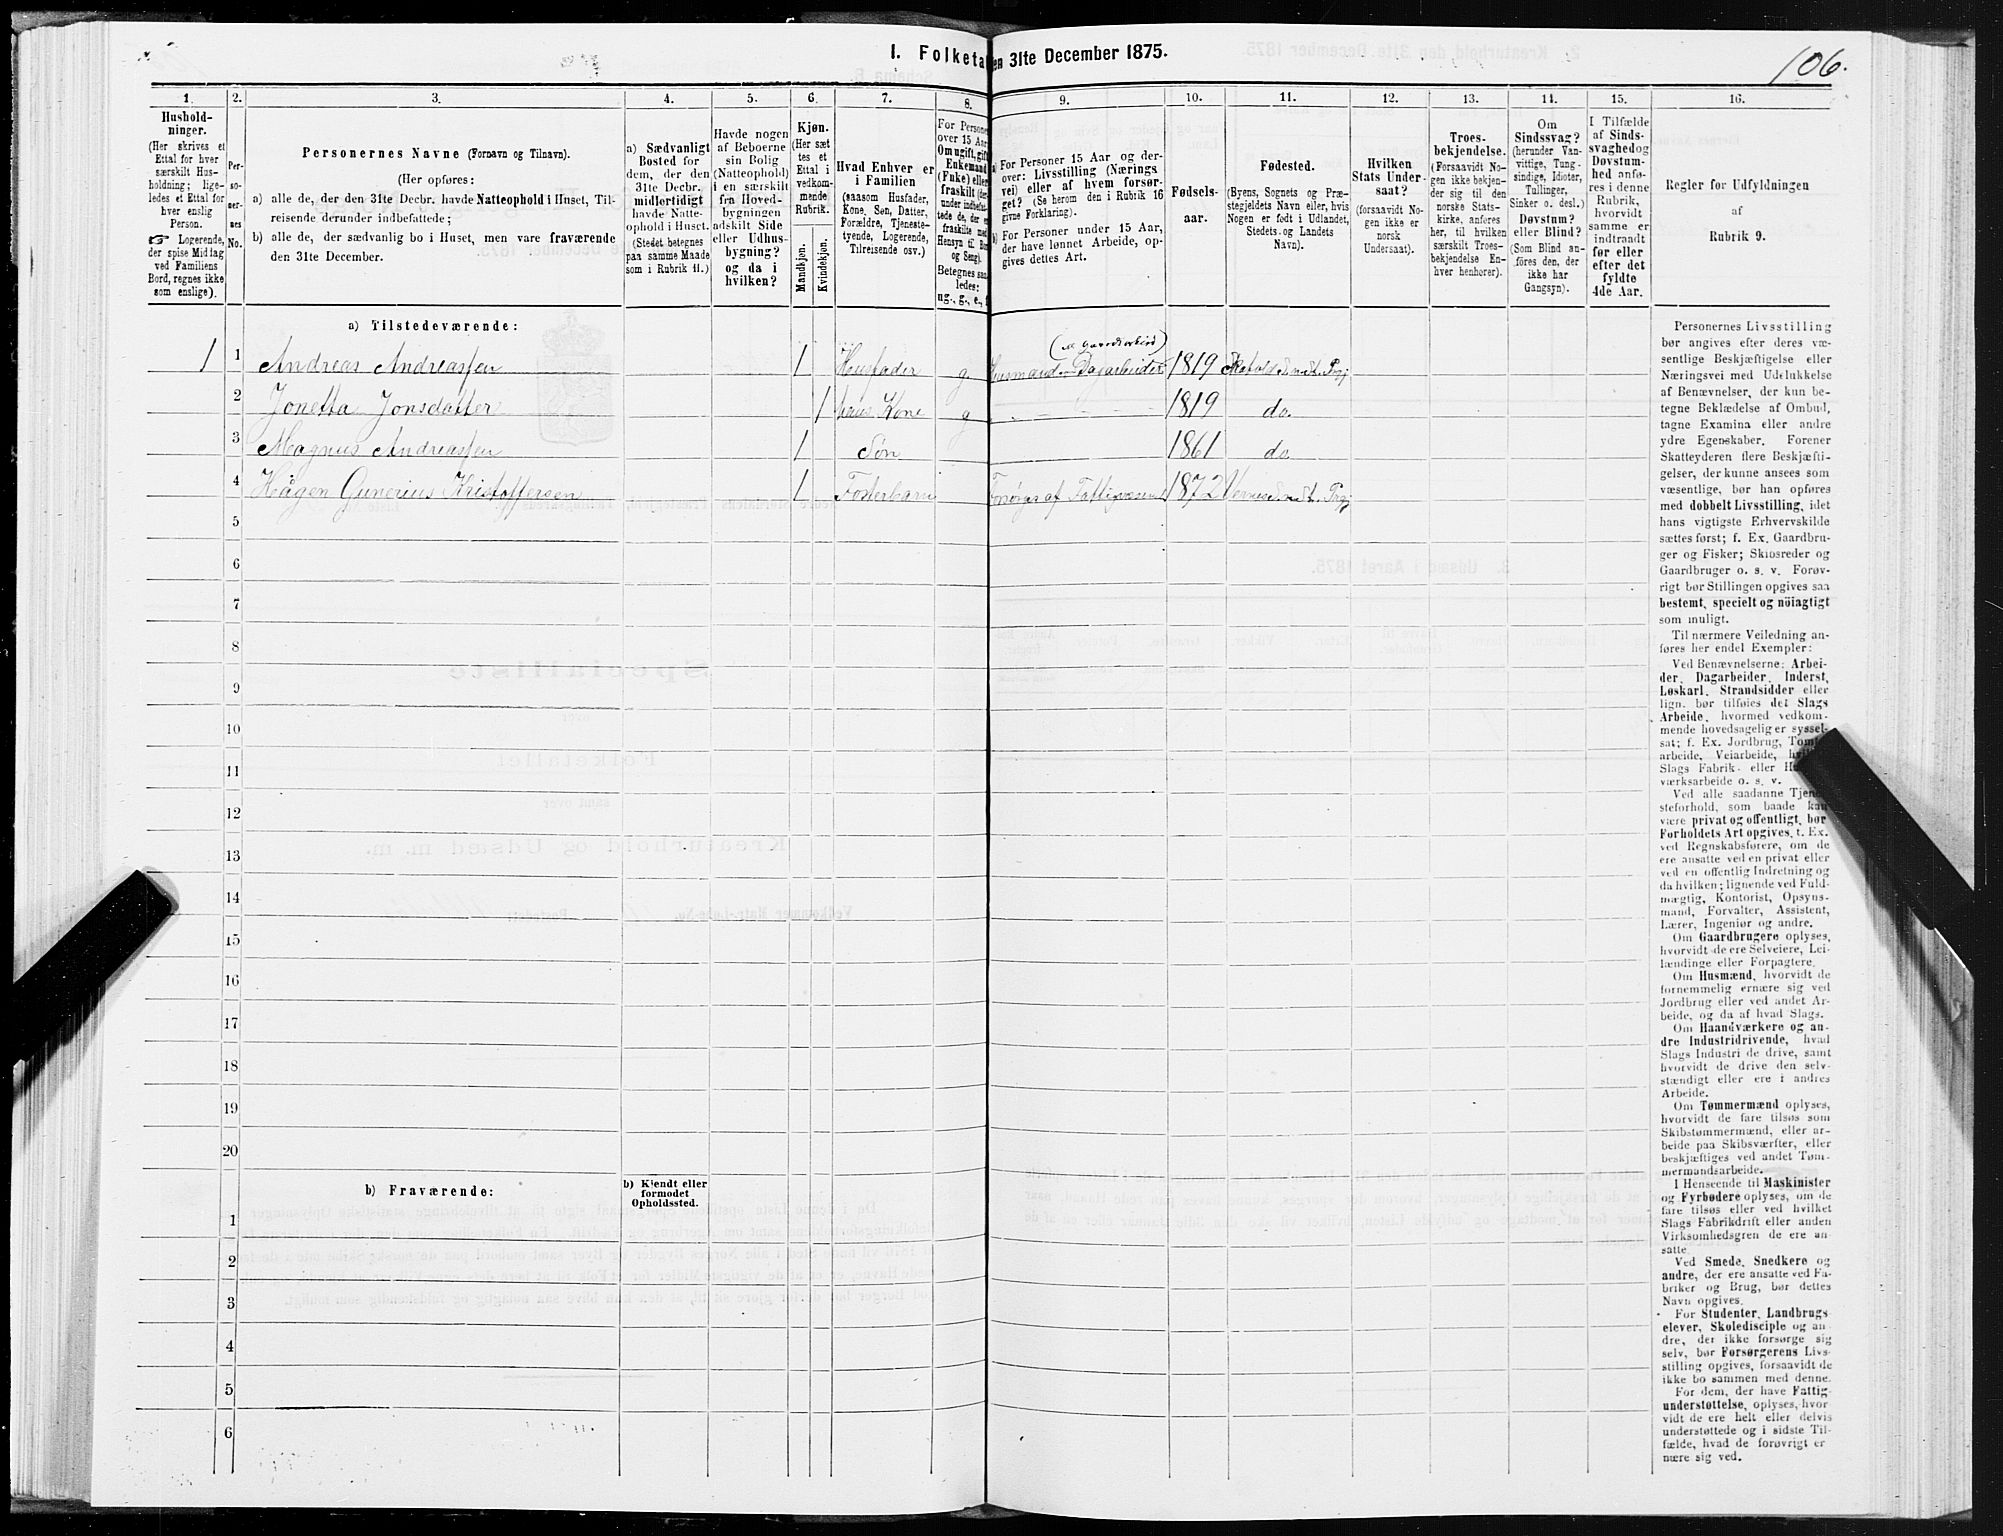 1. Folketa en 31te December 1875.
106.
1. 2. 3. 4. 5. 6. 7. 8. 9. 10. 11. 12. 13. 14. 15. 16.
Hushold-
ninger.
(Her skrives et
Ettal for hver
særskilt Hus-
holdning; lige-
ledes et Ettal for
hver enslig
Person.
☞ Logerende,
der spise Midtag
ved Familiens
Bord, regnes ikke
som enslige).
Per-
so-
ner-
nes
No.
Personernes Navne (Fornavn og Tilnavn).
(Her opføres:
a) alle de, der den 31te Decbr. havde Natteophold i Huset, Til-
reisende derunder indbefattede;
b) alle de, der sædvanlig bo i Huset, men vare fraværende
den 31te December.
a) Sædvanligt
Bosted for
dem, der den
31te Decbr.
midlertidigt
havde Natte-
ophold i Huset.
(Stedet betegnes
paa samme Maade
som i Rubrik 11.)
Havde nogen
af Beboerne
sin Bolig
(Natteophold)
i en særskilt
fra Hoved-
bygningen
adskilt Side
eller Udhus-
bygning?
og da i
hvilken?
Kjøn.
(Her sæt
tes et
Ettal i
vedkom-
mende
Rubrik.
Mandkjøn.
Kvindekjøn.
Hvad Enhver er
i Familien
(saasom Husfader,
Kone, Søn, Datter,
Forældre, Tjeneste-
tyende, Logerende,
Tilreisende osv.)
For Persone
over 15 Aar
Om ugift, gift
Enkemand
(Fnke) elle
fraskilt (der
under indbefat
tede de, der e
fraskilte med
Hensyn til Bo
og Seng).
Betegnes saa
ledes:
ug., g., e., f
a) For Personer 15 Aar og der-
over: Livsstilling (Nærings
vei) eller af hvem forsør-
get? (Se herom den i Rubrik 16
givne Forklaring).
b) For Personer under 15 Aar,
der have lønnet Arbeide, op-
gives dettes Art.
Fødsels-
aar.
Fødested.
(Byens, Sognets og Præ-
stegjeldets Navn eller, hvis
Nogen er født i Udlandet,
Stedets og Landets
Navn).
Hvilken
Stats Under-
saat?
(forsaavidt No-
gen ikke er
norsk
Undersaat).
Troes-
bekjendelse.
(Forsaavidt No-
gen ikke bekjen-
der sig til den
norske Stats-
kirke, anføres
her, til hvilken
særskilt Troes-
bekjendelse En-
hver henhører).
Om
Sindssvag?
(herunder Van-
vittige, Tung-
sindige, Idioter,
Tullinger,
Sinker o. desl.)
Døvstum?
eller Blind?
(Som Blind an-
føres den, der
ikke har
Gangsyn).
I Tilfælde
af Sinds-
svaghed og
Døvstum-
hed anfø-
res i denne
Rubrik,
hvorvidt
samme er
indtraadt
før eller
efter det
fyldte
4de Aar.
Regler for Udfyldningen
af
Rubrik 9.
a) Tilstedeværende:
1 1 Andreas Andreassen 1 Husfader g Husmand Dagarbeider 1819
2 Jonetta Jonsdatter 1 hans Kone g 1819 do.
3 Magnus Andreassen 1 Søn 1861 do
4 Hågen Gunerius Kristoffersen 1 Fosterbarn Forsørges af Fattigvæsenet 1872
5
6
7
8
9
10
11
12
13
14
15
16
17
18
19
20
b) Fraværende:
b) Kjendt eller
formodet
Opholdssted.
1
2
3
4
5
6
Personernes Livsstilling
bør angives efter deres væ-
sentlige Beskjæftigelse eller
Næringsvei med Udelukkelse
af Benævnelser, der kun be-
tegne Beklædelse af Ombud,
tagne Examina eller andre
ydre Egenskaber. Forener
Skatteyderen flere Beskjæfti-
gelser, der kunne ansees som
væsentlige, bør han opføres
med dobbelt Livsstilling, idet
hans vigtigste Erhvervskilde
sættes først; f. Ex. Gaardbru-
ger og Fisker; Skibsreder og
Gaardbruger o. s. v. Forøv-
rigt bør Stillingen opgives saa
bestemt, specielt og nöiagtigt
som muligt.
Til nærmere Veiledning an-
føres her endel Exempler:
Ved Benævnelserne: Arbei-
der, Dagarbeider, Inderst,
Løskarl, Strandsidder eller
lign. bør tilføies det Slags
Arbeide, hvormed vedkom-
mende hovedsagelig er syssel-
sat; f. Ex. Jordbrug, Tom
arbeide, Veiarbeide,
Slags Fabrik- eller H
værksarbeide o. s. v.
Ved alle saadanne Tjene
steforhold, som baade kan
være privat og offentligt, bør
Forholdets Art opgives, t. Ex.
ved Regnskabsførere, om de
ere ansatte ved en privat eller
ved en offentlig Indretning og
da hvilken; lignende ved Fuld-
mægtig, Kontorist, Opsyns-
mand, Forvalter, Assistent,
Lærer, Ingeniør og andre.
Om Gaardbrugere oplyses,
hvorvidt de ere Selveiere, Lei-
lændinge eller Forpagtere.
Om Husmænd, hvorvidt de
fornemmelig ernære sig ved
Jordbrug eller ved andet Ar-
beide, og da af hvad Slags.
Om Haandværkere og an-
dre Industridrivende, hvad
Slags Industri de drive, samt
hvorvidt de drive den selv-
stændigt eller ere i andres
Arbeide.
Om Tømmermænd oplyses,
hvorvidt de fare tilsøs som
Skibstømmermænd, eller ar-
beide paa Skibsværfter, eller
beskjæftiges ved andet Tøm-
mermandsarbeide.
I Henseende til Maskinister
og Fyrbødere oplyses, om de
fare tilsøs eller ved hvilket
Slags Fabrikdrift eller anden
Virksomhedsgren de ere an-
satte.
Ved Smede, Snedkere og
andre, der ere ansatte ved Fa-
briker og Brug, bør dettes
Navn opgives.
For Studenter, Landbrugs-
elever, Skoledisciple og an-
dre, der ikke forsørge sig
selv, bør Forsørgerens Livs-
stilling opgives, forsaavidt de
ikke bo sammen med denne.
For dem, der have Fattig-
understøttelse, oplyses, hvor-
vidt de ere helt eller delvis
understøttede og i sidste Til-
fælde, hvad de forøvrigt er
nære sig ved.